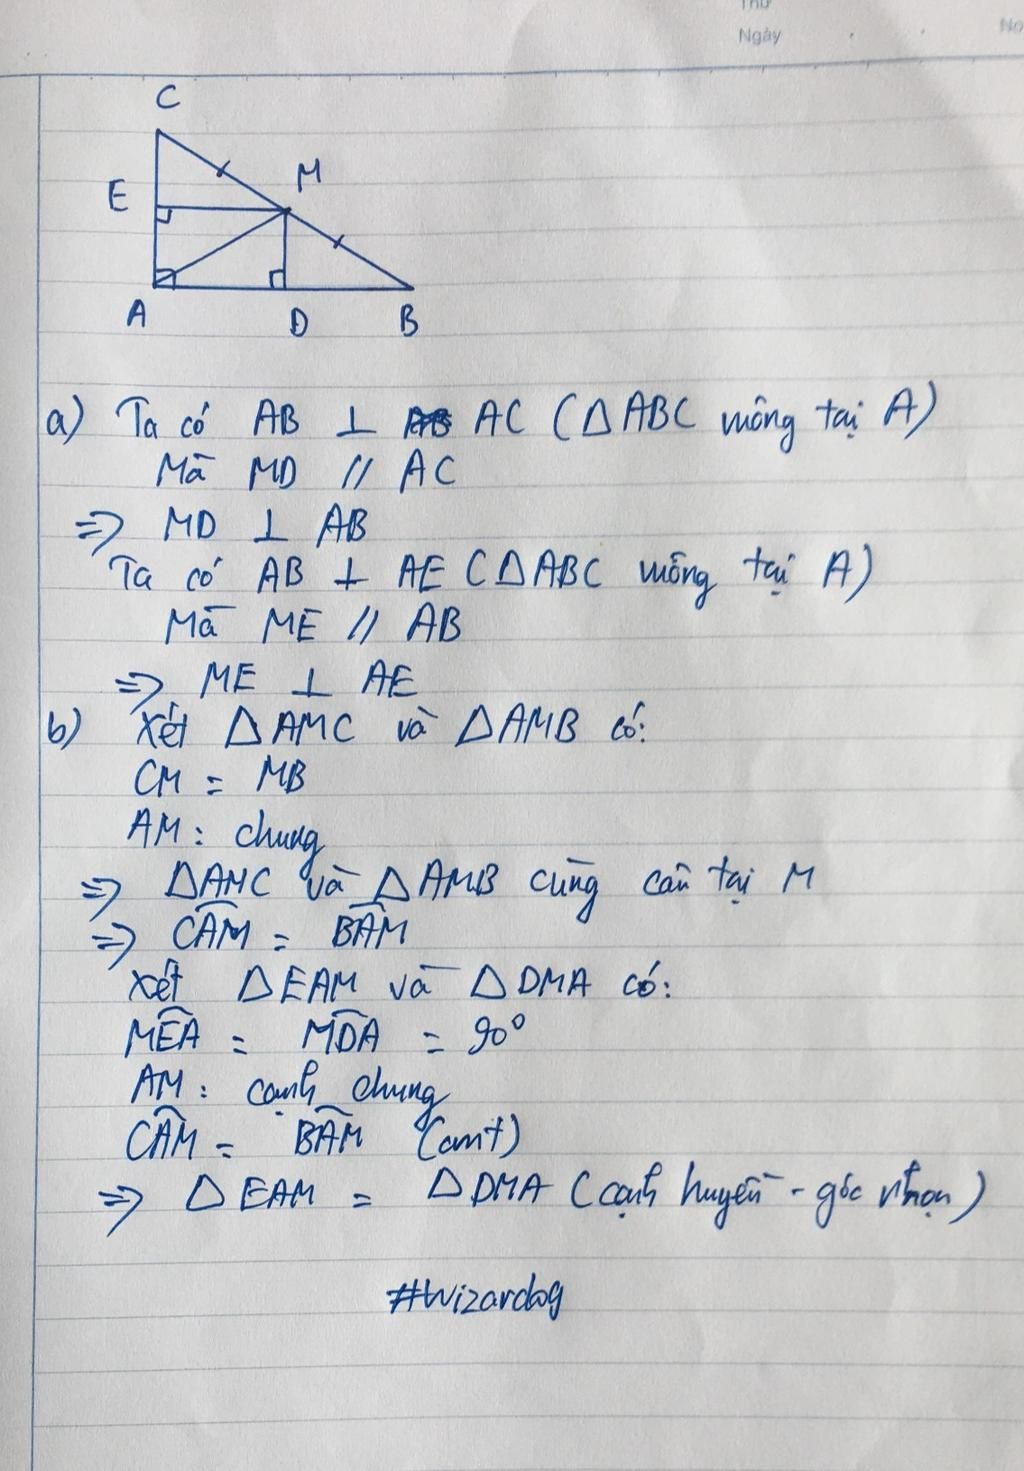 Thứ
Ngày
No
C
E
M
A
D
B
a) Ta có AB ⊥ AC (△ABC vuông tại A)
Mà MD // AC
=> MD ⊥ AB
Ta có AB ⊥ AE (△ABC vuông tại A)
Mà ME // AB
=> ME ⊥ AE
b) Xét △AMC và △AMB có:
CM = MB
AM : chung
=> △AMC và △AMB cùng cân tại M
=> CAM = BAM
Xét △EAM và △DMA có:
MEA = MDA = 90°
AM : cạnh chung
CAM = BAM (cmt)
=> △EAM = △DMA (cạnh huyền - góc nhọn)
#Wizardog